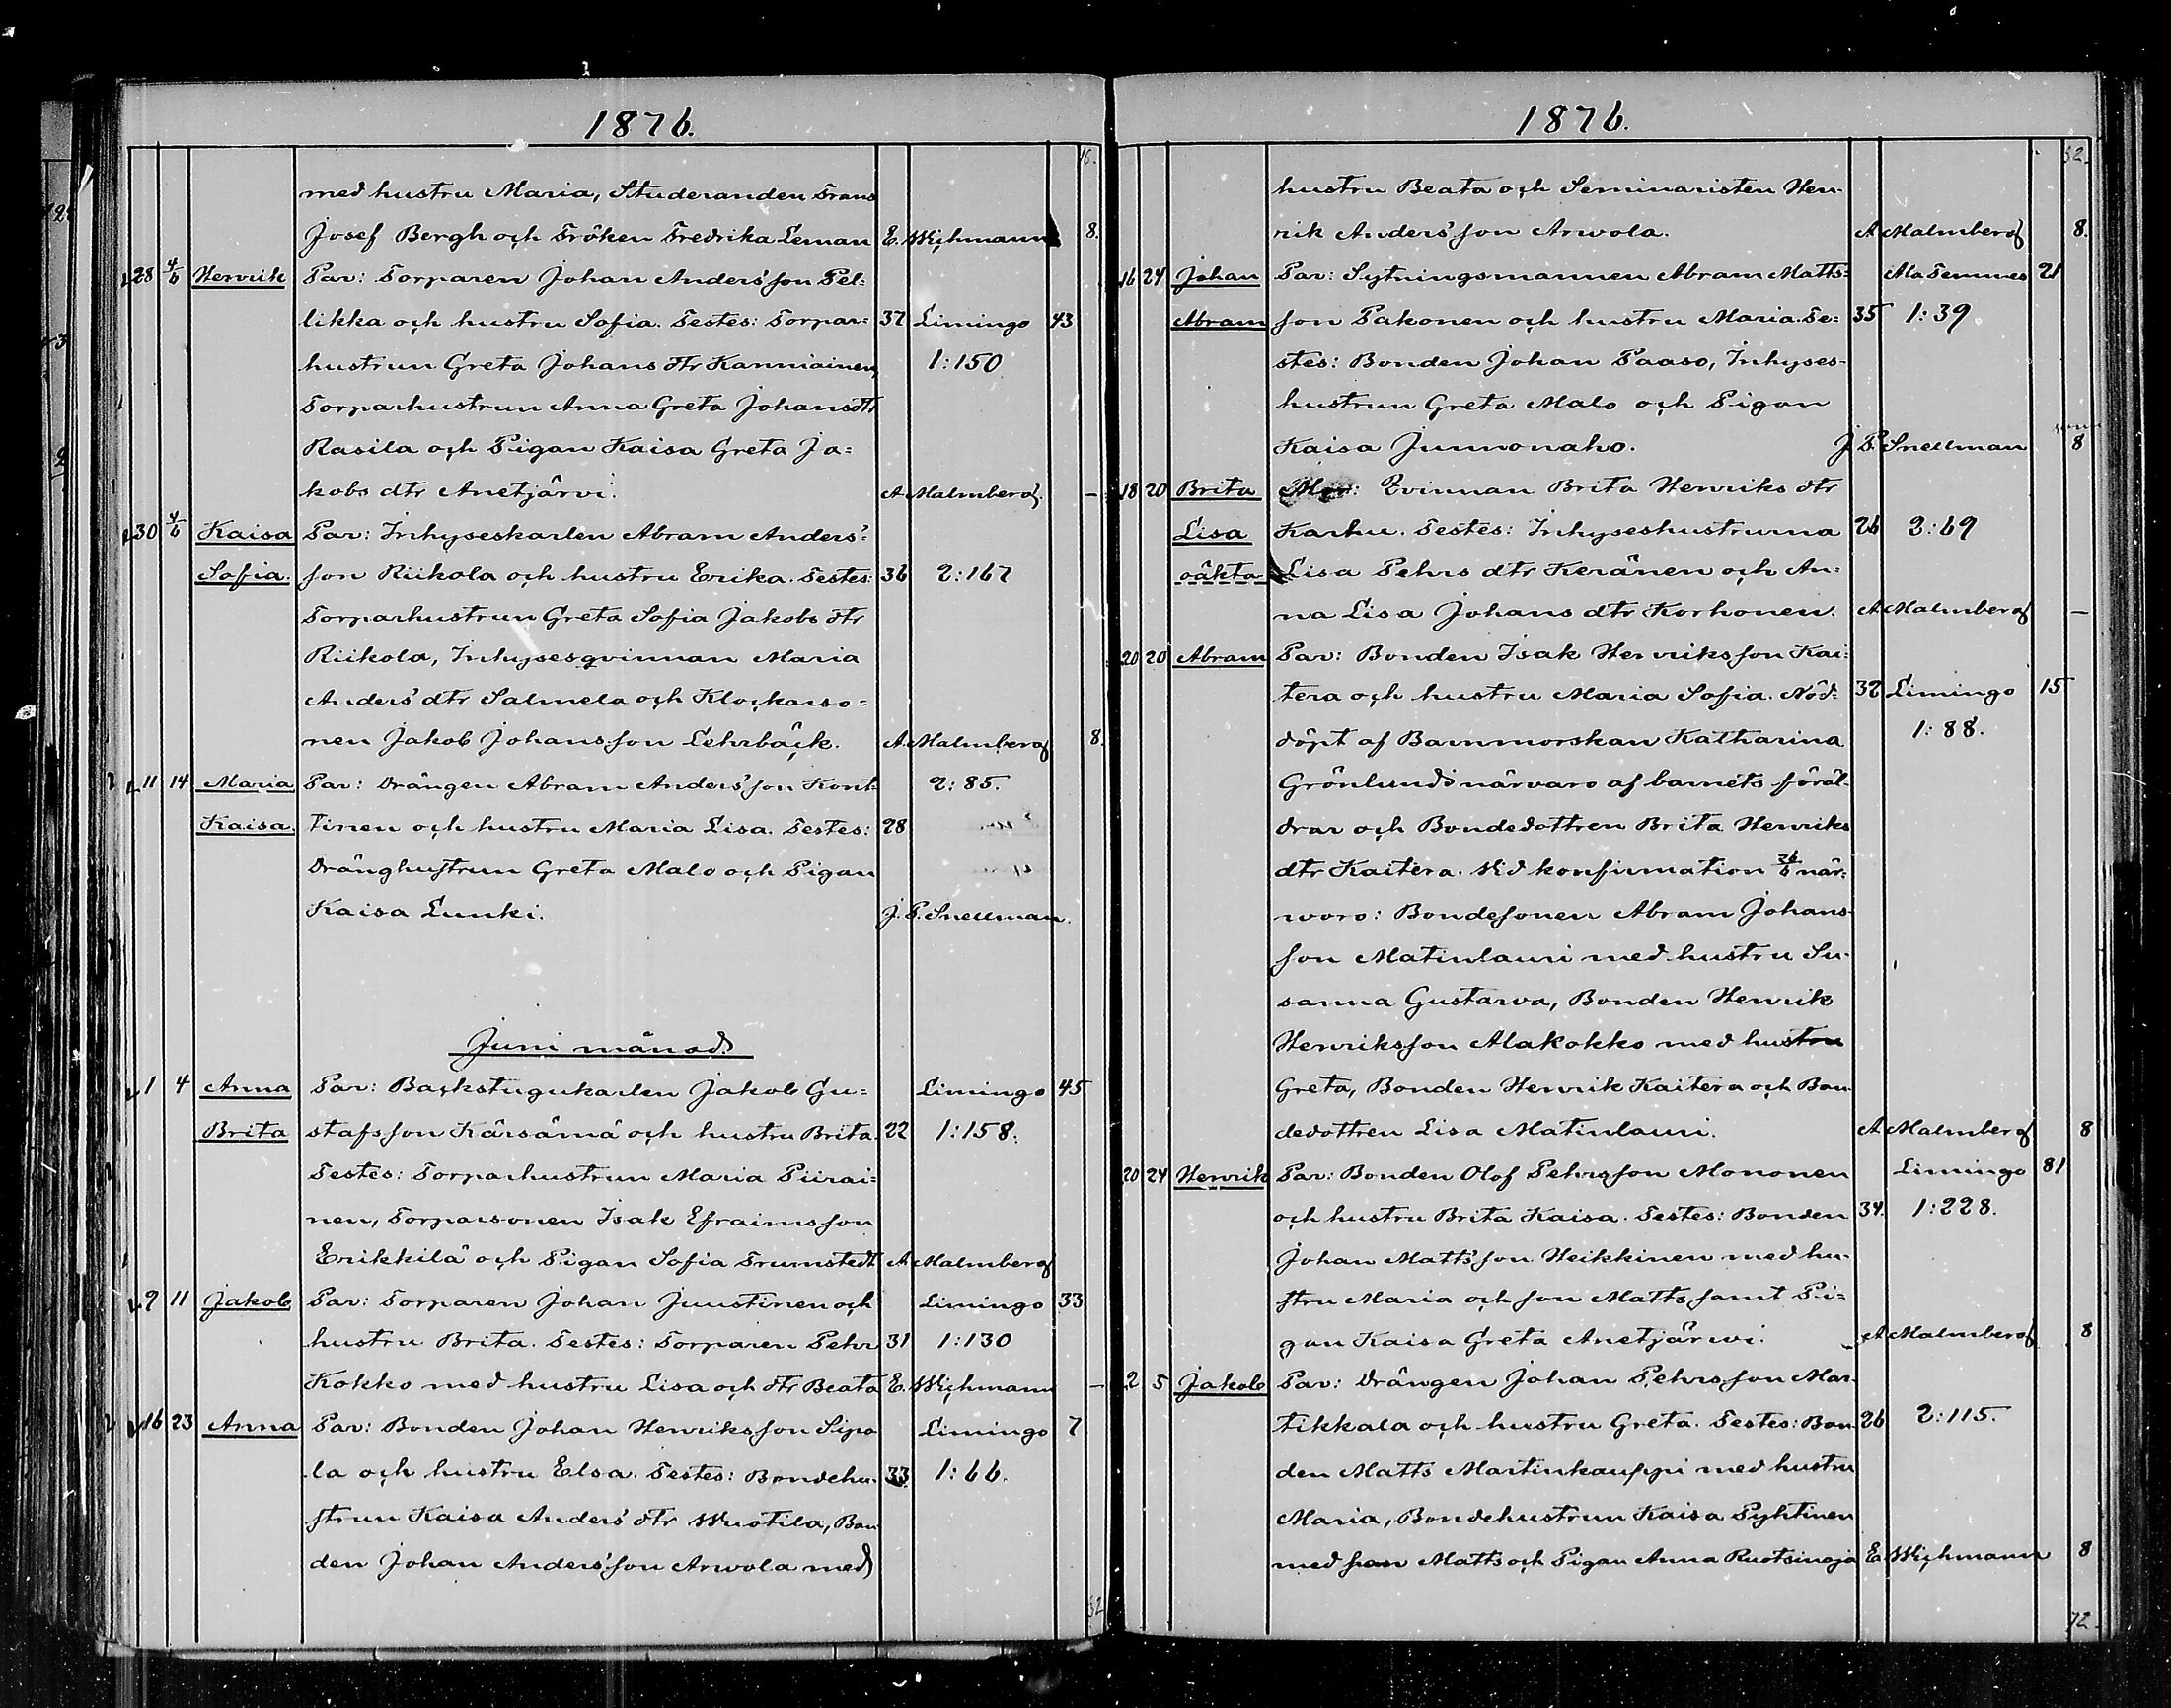 1876.
16.
med hustru Maria, Studeranden Frans
Josef Bergh och Fröken Fredrika Leman E. Wichmann 8.
28 4/6 Henrik Par: Torparen Johan Anders'son Pel-
likka och hustru Sofia. Testes: Torpar- 37 Limingo 43
hustrun Greta Johans dtr Kanniainen, 1:150
Torparhustrun Anna Greta Johansdtr
Rasila och Pigan Kaisa Greta Ja-
kobs dtr Anetjärvi. A Malmberg. —
30 4/6 Kaisa Par: Inhyseskarlen Abram Anders'-
Sofia. son Riikola och hustru Erika. Testes: 36 2:167
Torparhustrun Greta Sofia Jakobs dtr
Riikola, Inhysesqvinnan Maria
Anders' dtr Salmela och Klockarso-
nen Jakob Johansson Lehrbäck. A Malmberg 8.
11 14 Maria Par: Drängen Abram Anders'son Kont- 2:85.
Kaisa. tinen och hustru Maria Lisa. Testes: 28
Dränghustrun Greta Malo och Pigan
Kaisa Lunki. J. P. Snellman.
Juni månad
1 4 Anna Par: Backstugukarlen Jakob Gu- Limingo 45
Brita stafsson Kärsämä och hustru Brita. 22 1:158.
Testes: Torparhustrun Maria Piirai-
nen, Torparsonen Isak Efraimsson
Erikkilä och Pigan Sofia Trumstedt A Malmberg
9 11 Jakob Par: Torparen Johan Juustinen och Limingo 33
hustru Brita. Testes: Torparen Pehr 31 1:130
Kokko med hustru Lisa och dtr Beata E. Wichmann —
16 23 Anna Par: Bonden Johan Henriksson Sipo Limingo 7
la och hustru Elsa. Testes: Bondehu- 33. 1:66.
strun Kaisa Anders' dtr Wuotila, Bon
den Johan Anders'son Arwola med
32
1876.
52.
hustru Beata och Seminaristen Hen-
rik Anders'son Arwola. A Malmberg 8.
16 24 Johan Par: Sytningsmannen Abram Matts- Ala Temmes 21
Abram son Pakonen och hustru Maria. Te- 35 1:39
stes: Bonden Johan Paaso, Inhyses-
hustrun Greta Malo och Pigan
Kaisa Junnonaho. J. P. Snellman 8
18 20 Brita Mor: Qvinnan Brita Henriks dtr
Lisa Karhu. Testes: Inhyseshustrurna 26 3:69
oäkta Lisa Pehrs dtr Keränen och An-
na Lisa Johans dtr Korhonen. A Malmberg —
20 20 Abram Par: Bonden Isak Henriksson Kai-
tera och hustru Maria Sofia. Nöd- 32 Limingo 15
döpt af Barnmorskan Katharina 1:88.
Grönlund i närvaro af barnets föräl-
drar och Bondedottren Brita Henriks
dtr Kaitera. Vid konfirmation 26/6 när-
varo: Bondesonen Abram Johans-
son Matinlauri med hustru Su-
sanna Gustarva, Bonden Henrik
Henriksson Alakokko med hustru
Greta, Bonden Henrik Kaitera och Bon-
dedottren Lisa Matinlauri. A Malmberg 8
20 24 Henrik Par: Bonden Olof Pehrsson Mononen Limingo 81
och hustru Brita Kaisa. Testes: Bonden 34. 1:228.
Johan Matts'son Heikkinen med hu-
stru Maria och son Matts samt Pi-
gan Kaisa Greta Anetjärwi. A Malmberg 8
2 5 Jakob Par: Drängen Johan Pehrsson Mar-
tikkala och hustru Greta. Testes: Bon- 26 2:115.
den Matts Martinkauppi med hustru
Maria, Bondehustrun Kaisa Pyhtinen
med son Matts och Pigan Anna Ruotsinoja E. Wichmann 8
72.